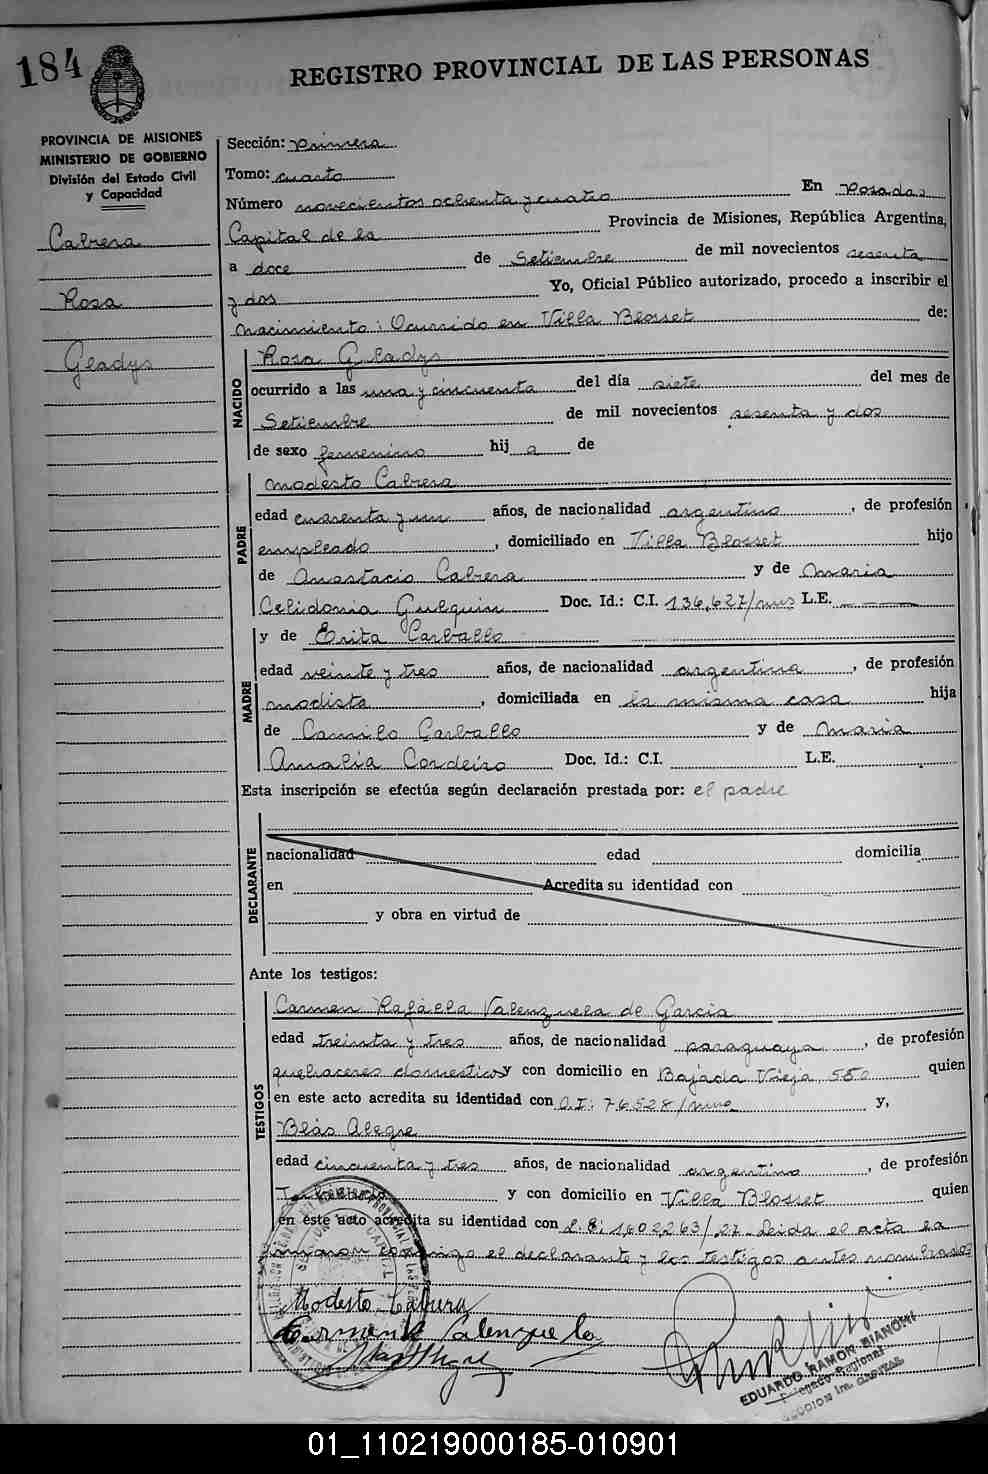 184
REGISTRO PROVINCIAL DE LAS PERSONAS
PROVINCIA DE MISIONES
MINISTERIO DE GOBIERNO
División del Estado Civil
y Capacidad
Cabrera
Rosa
Gladys
Sección: primera
Tomo: cuarto
Número novecientos ochenta y cuatro En Posadas
Capital de la Provincia de Misiones, República Argentina,
a doce de Setiembre de mil novecientos sesenta
y dos Yo, Oficial Público autorizado, procedo a inscribir el
nacimiento: Ocurrido en Villa Blosset de:
NACIDO
Rosa Gladys
ocurrido a las una y cincuenta del día siete del mes de
Setiembre de mil novecientos sesenta y dos
de sexo femenino hij a de
PADRE
Modesto Cabrera
edad cuarenta y un años, de nacionalidad argentino, de profesión
empleado, domiciliado en Villa Blosset hijo
de Anastacio Cabrera y de Maria
Celidonia Gulquin Doc. Id.: C.I. 136,627/mns L.E.
MADRE
y de Erita Carballo
edad veinte y tres años, de nacionalidad argentina, de profesión
modista, domiciliada en la misma casa hija
de Camilo Carballo y de Maria
Amalia Cordeiro Doc. Id.: C.I. L.E.
Esta inscripción se efectúa según declaración prestada por: el padre
DECLARANTE
nacionalidad edad domicilia
en Acredita su identidad con
y obra en virtud de
Ante los testigos:
TESTIGOS
Carmen Rafaela Valenzuela de Garcia
edad treinta y tres años, de nacionalidad paraguaya, de profesión
quehaceres domesticos y con domicilio en Bajada Vieja 580 quien
en este acto acredita su identidad con C.I: 76528/mns y,
Blás Alegre
edad cincuenta y tres años, de nacionalidad argentino, de profesión
y con domicilio en Villa Blosset quien
en este acto acredita su identidad con L.E: 1602263/27. Leida el acta la
firmaron conmigo el declarante y los testigos antes nombrados
Modesto Cabrera
Carmen R Valenzuela
Blas Alegre
EDUARDO RAMON BIANCHI
Delegado Regional
01_110219000185-010901